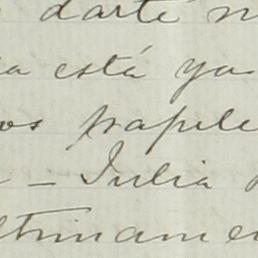 darte
a está ya
os papele
- Julia
ltimame